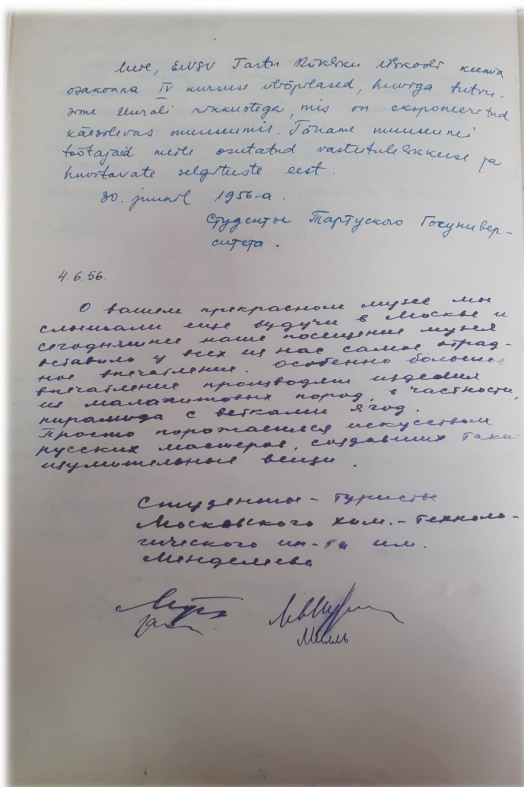 Meie, ENSV Tartu Riikliku Ülikooli keemia
osakonna IV kursuse üliõpilased, huviga tutvu-
sime Uurali rikkustega, mis on eksponeeritud
käesolevas muuseumis. Täname muuseumi
töötajaid meile osutatud vastutulelikkuse ja
huvitavate selgituste eest.
30. juunil 1956-a.
Студенты Тартуского Госунивер-
ситета.
4.6.56.
О вашем прекрасном музее мы
слышали еще будучи в Москве и
сегодняшнее наше посещение музея
оставило у всех из нас самое отрад-
ное впечатление. Особенно большое
впечатление производят изделия
из малахитовых пород, в частности,
пирамида с ветками ягод.
Просто поражаешься искусством
русских мастеров, создавших такие
изумительные вещи.
Студенты - туристы
Московского хим.-техноло-
гического ин-та им.
Менделеева
Милль